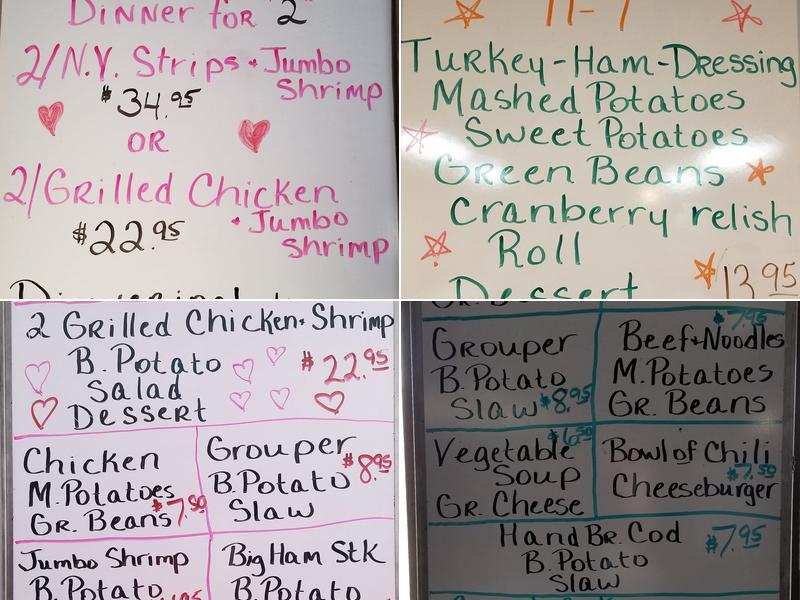 Dinner for "2"
2/N.Y. Strips + Jumbo
Shrimp
$34.95
OR
2/Grilled Chicken
$22.95 + Jumbo
Shrimp
11-7
Turkey-Ham-Dressing
Mashed Potatoes
Sweet Potatoes
Green Beans
Cranberry relish
Roll
Dessert
$13.95
2 Grilled Chicken + Shrimp
B. Potato
Salad
Dessert
$22.95
Chicken
M. Potatoes
Gr. Beans $7.50
Grouper
B. Potato $8.95
Slaw
Jumbo Shrimp
B. Potato
Big Ham Stk
B. Potato
Grouper
B. Potato
Slaw $8.95
$7.95
Beef + Noodles
M. Potatoes
Gr. Beans
Vegetable $6.50
Soup
Gr. Cheese
Bowl of Chili
$7.50
Cheeseburger
Hand Br. Cod
B. Potato
Slaw
$7.95